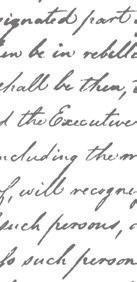 signated part
en be in rebell
shall be then, t
d the Executive
ncluding the m
f, will recogn
such persons,
fo such person